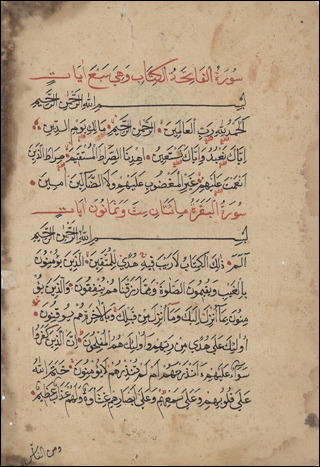 سورة الفاتحة الكتاب وهي سبع ايات
بسم الله الرحمن الرحيم
الحمد لله رب العالمين الرحمن الرحيم مالك يوم الدين
اياك نعبد واياك نستعين اهدنا الصراط المستقيم صراط الذين
انعمت عليهم غير المغضوب عليهم ولا الضالين امين
سورة البقرة مائتان ست وثمانون ايات
بسم الله الرحمن الرحيم
الم ذلك الكتاب لا ريب فيه هدى للمتقين الذين يؤمنون
بالغيب ويقيمون الصلوة ومما رزقناهم ينفقون والذين يؤ
منون بما انزل اليك وما انزل من قبلك وبالاخرة هم يوقنون
اولئك على هدى من ربهم واولئك هم المفلحون ان الذين كفروا
سواء عليهم ءانذرتهم ام لم تنذرهم لا يؤمنون ختم الله
على قلوبهم وعلى سمعهم وعلى ابصارهم غشاوة ولهم عذاب عظيم
ومن الناس